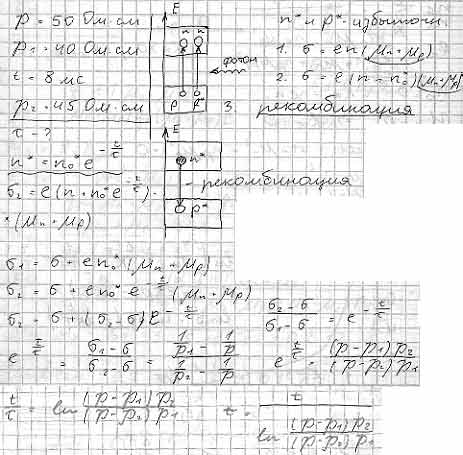 ρ = 50 Ом·см
ρ₁ = 40 Ом·см
t = 8 мс
ρ₂ = 45 Ом·см
τ - ?
E
n n
фотон
p p
n* и p* - избыточн.
1. σ = en(μn + μp)
2. σ = e(n - n₀*)(μn + μp)
3. рекомбинация
E
n*
- рекомбинация
p*
n* = n₀* e^(-t/τ)
σ₂ = e(n + n₀* e^(-t/τ)) ·
* (μn + μp)
σ₁ = σ + en₀*(μn + μp)
σ₂ = σ + en₀* e^(-t/τ) (μn + μp)
σ₂ - σ + (σ₂ - σ) e^(-t/τ)
(σ₂ - σ)/(σ₁ - σ) = e^(-t/τ)
e^(t/τ) = (σ₁ - σ)/(σ₂ - σ) = (1/ρ₁ - 1/ρ)/(1/ρ₂ - 1/ρ)
e^(t/τ) = (ρ - ρ₁)ρ₂/(ρ - ρ₂)ρ₁
t/τ = ln (ρ - ρ₁)ρ₂/(ρ - ρ₂)ρ₁
t = t/(ln (ρ - ρ₁)ρ₂/(ρ - ρ₂)ρ₁)